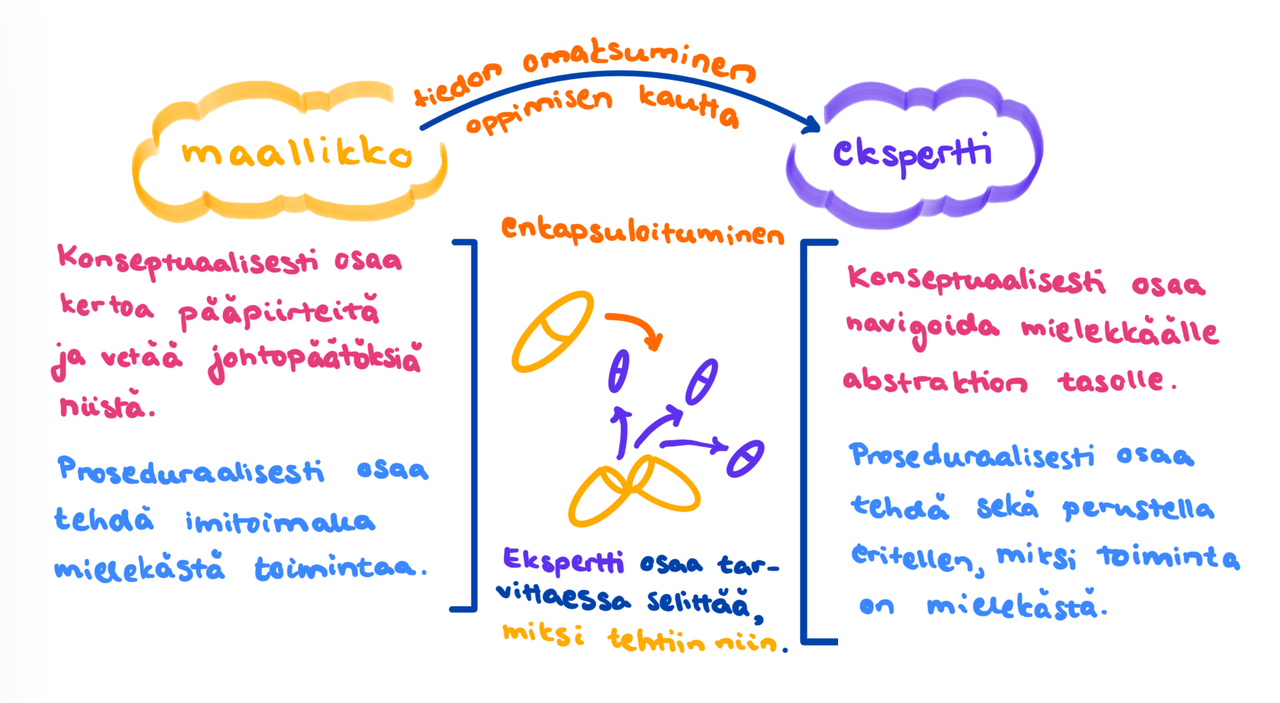 tiedon omaksuminen
oppimisen kautta
maallikko
ekspertti
Konseptuaalisesti osaa
kertoa pääpiirteitä
ja vetää johtopäätöksiä
niistä.
Proseduraalisesti osaa
tehdä imitoimalla
mielekästä toimintaa.
enkapsuloituminen
Ekspertti osaa tar-
vittaessa selittää,
miksi tehtiin niin.
Konseptuaalisesti osaa
navigoida mielekkäälle
abstraktion tasolle.
Proseduraalisesti osaa
tehdä sekä perustella
eritellen, miksi toiminta
on mielekästä.